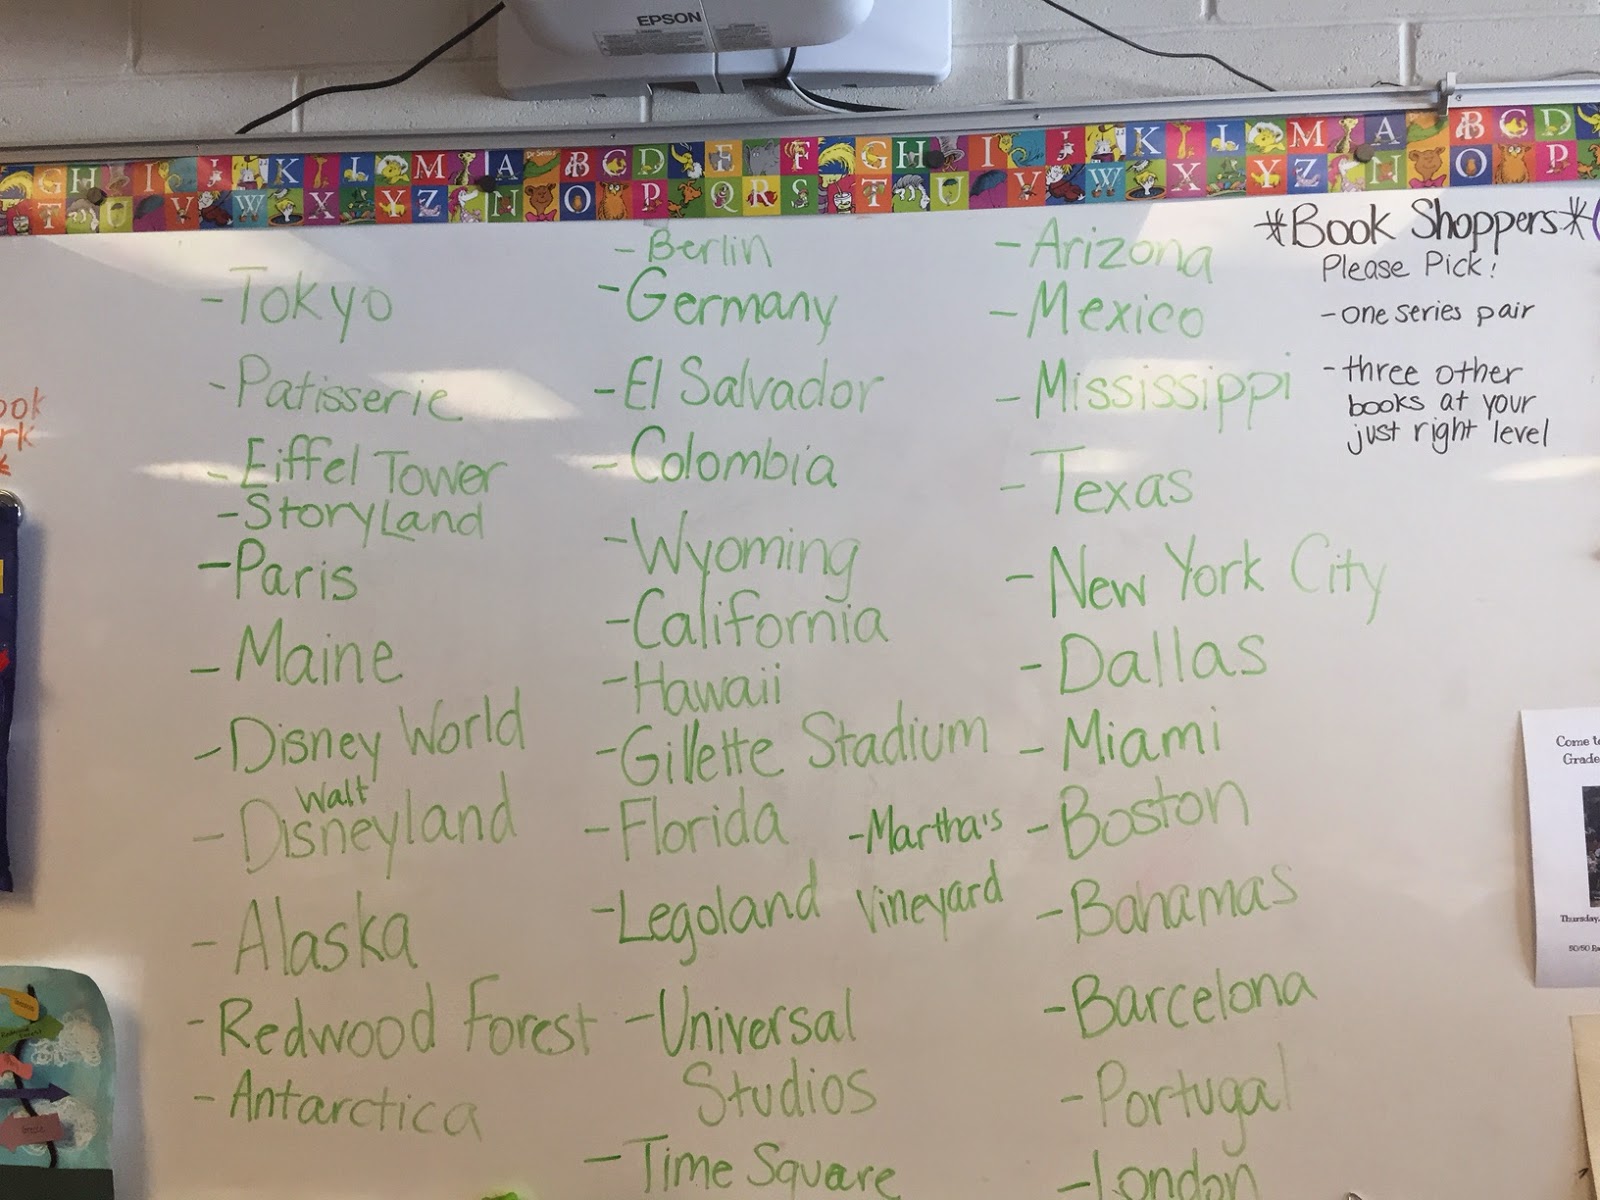 EPSON
- Tokyo
- Patisserie
- Eiffel Tower
- StoryLand
- Paris
- Maine
- Disney World
Walt
- Disneyland
- Alaska
- Redwood Forest
- Antarctica
- Berlin
- Germany
- El Salvador
- Colombia
- Wyoming
- California
- Hawaii
- Gillette Stadium
- Florida
- Legoland
- Martha's
Vineyard
- Universal
Studios
- Time Square
- Arizona
- Mexico
- Mississippi
- Texas
- New York City
- Dallas
- Miami
- Boston
- Bahamas
- Barcelona
- Portugal
- London
*Book Shoppers*
Please Pick:
- one series pair
- three other
books at your
just right level
Come
Grade
Thursday,
50/50
G H I J K L M A B C D E F G H I J K L M A B C D
T U V W X Y Z N O P Q R S T U V W X Y Z N O P